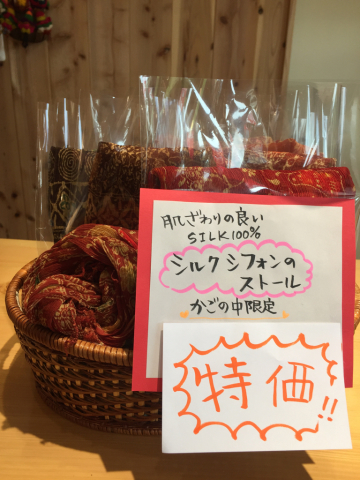 肌ざわりの良い
SILK100%
シルクシフォンの
ストール
かごの中限定
特価!!